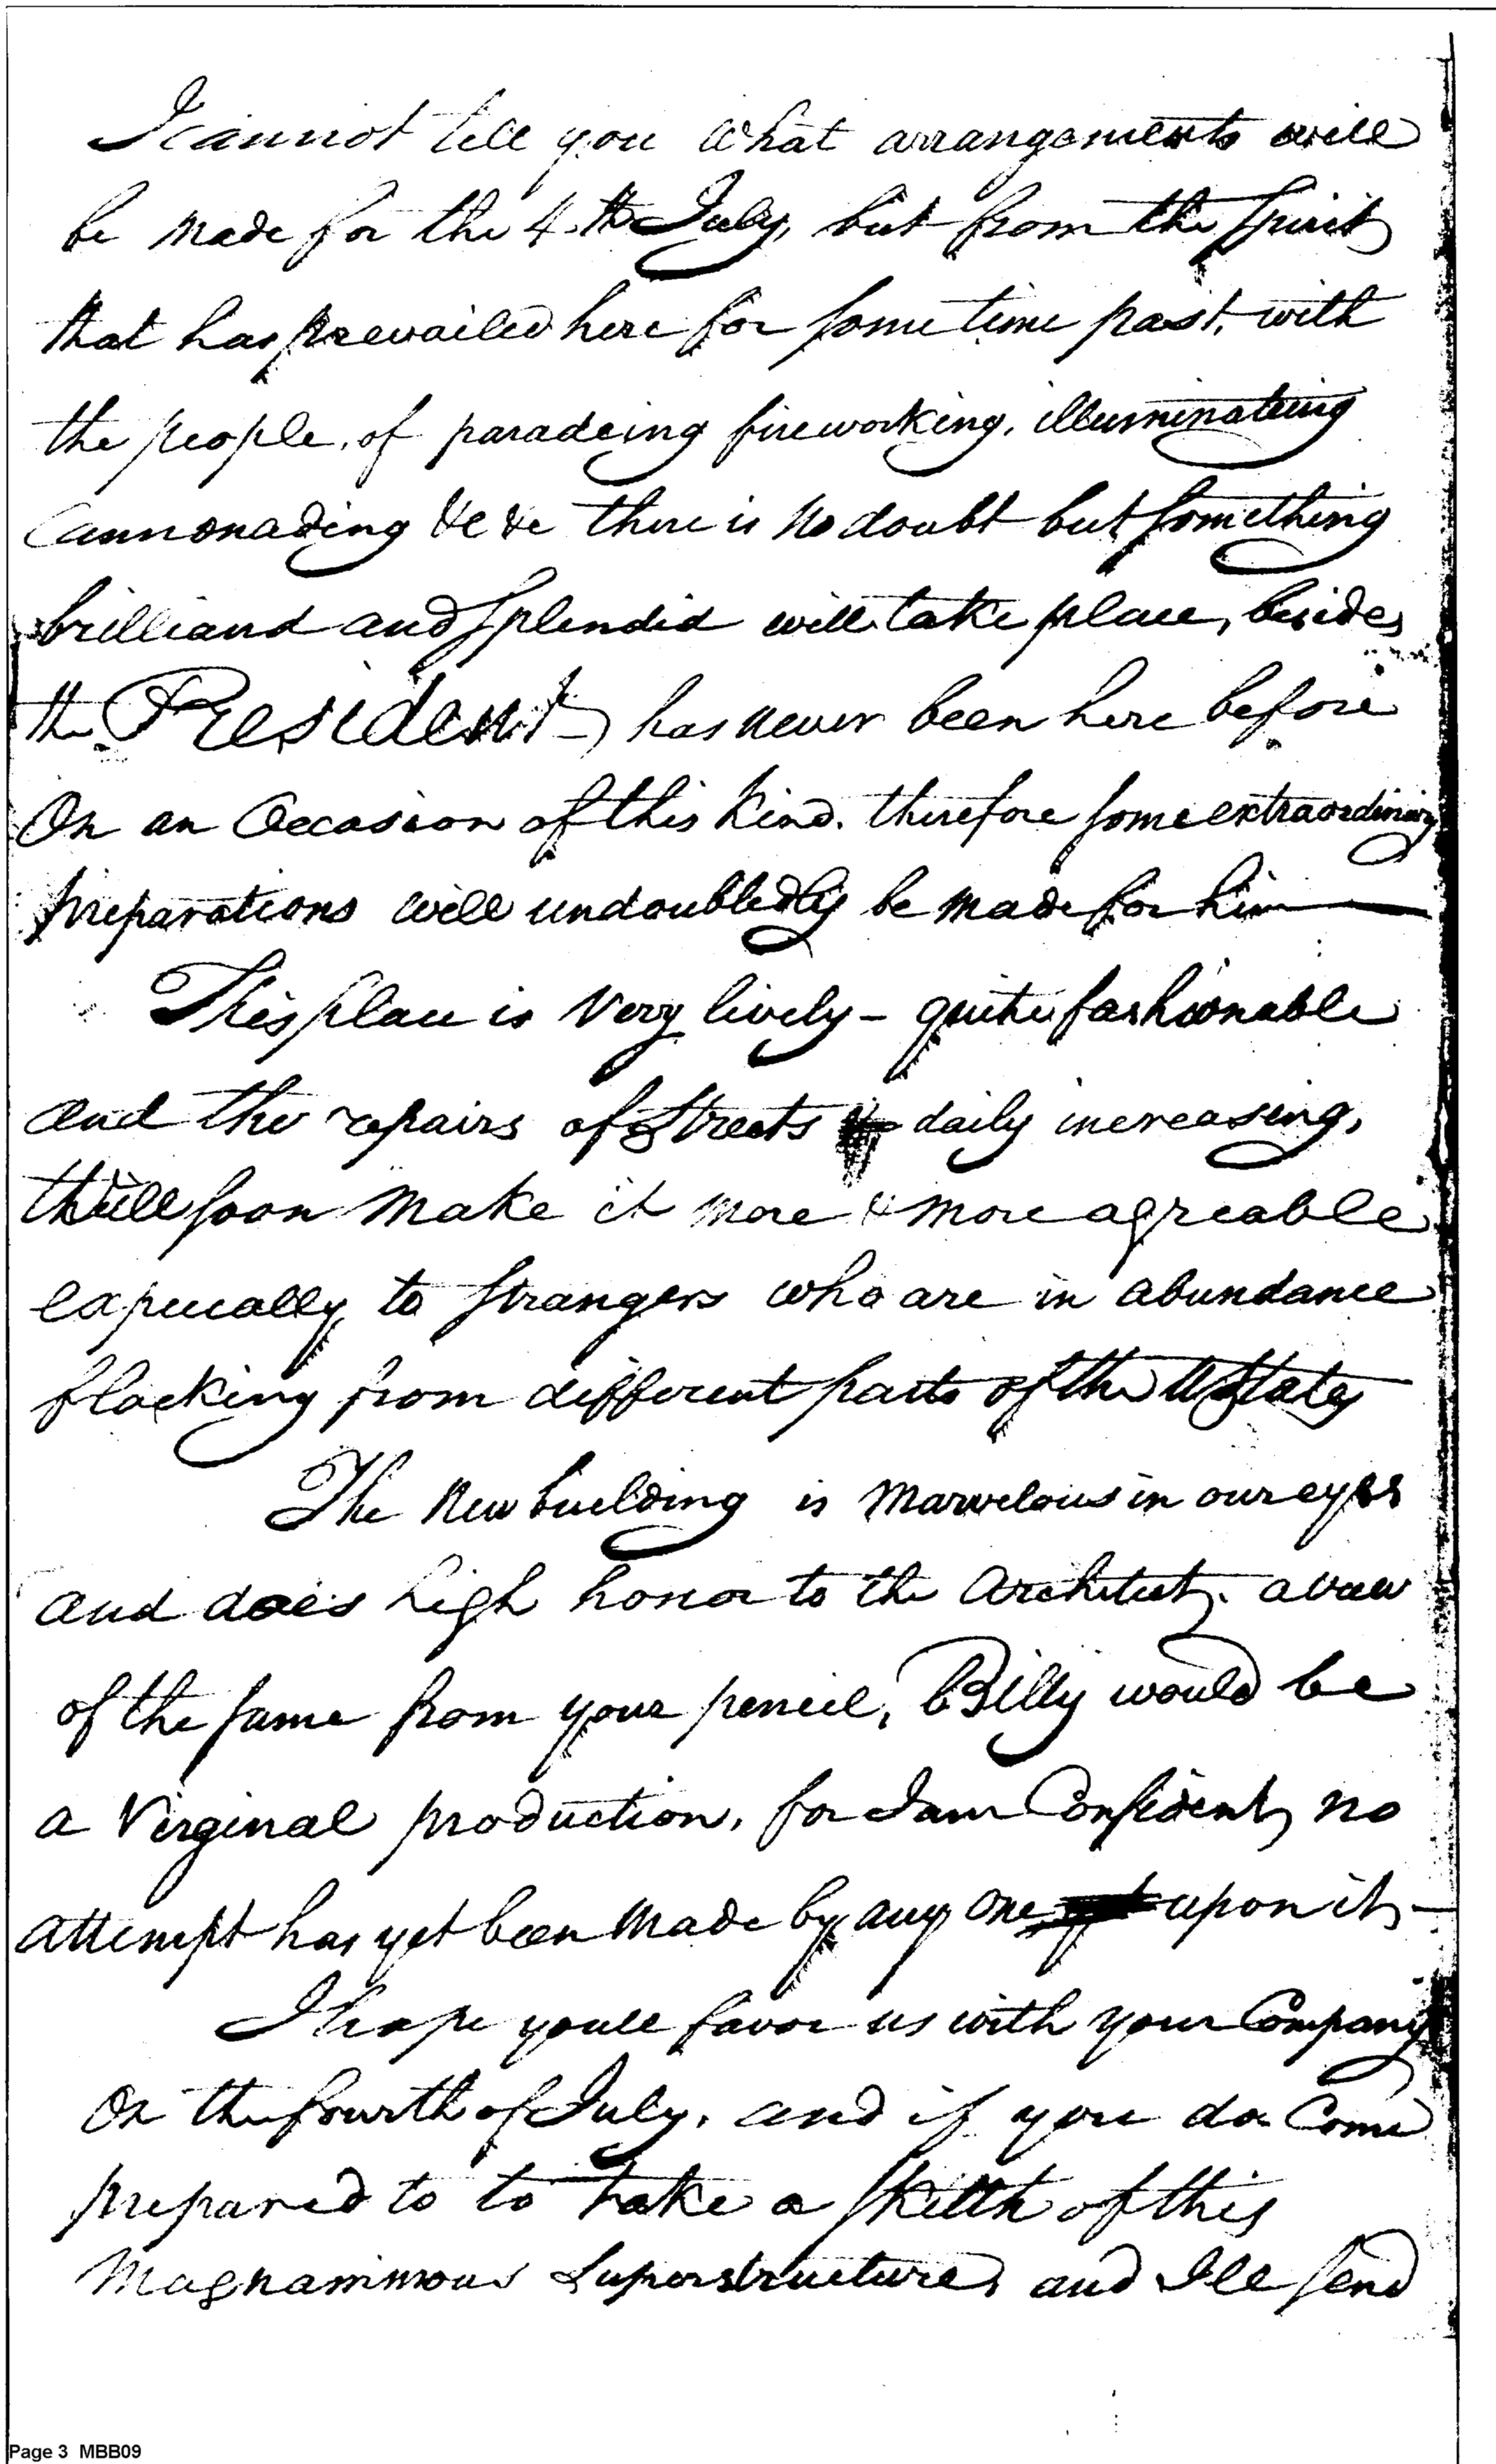 I cannot tell you What arrangements will
be made for the 4th July, but from the Spirit
that has prevailed here for some time past, with
the people, of paradeing fireworking, illuminateing
Cannonading &c &c there is No doubt but something
brilliand and Splendid will take place, besides
the President has never been here before
On an Occasion of this kind. therefore some extraordinary
preparations will undoubtedly be made for him —
This place is Very lively – quite fashionable
and the repairs of Streets daily increasing,
soon Make it more & more agreable
expecially to Strangers who are in abundance
flocking from different parts of the U States
The New building is Marvelous in our eyes
and does high honor to the Architect. a view
of the same from your pencil, Billy would be
a Virginal production, for I am Confident, no
attempt has yet been Made by any One upon it —
I hope youll favor us with your Company
On the fourth of July, and if you do Come
prepared to to take a Sketch of this
Magnanimous Superstructure, and Ill Send
Page 3 MBB09